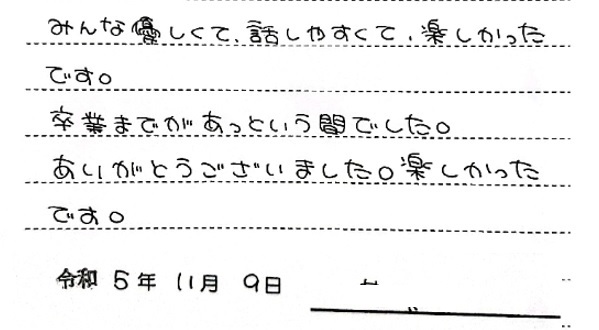 みんな優しくて、話しやすくて、楽しかった
です。
卒業までがあっという間でした。
ありがとうございました。楽しかった
です。
令和 5年 11月 9日